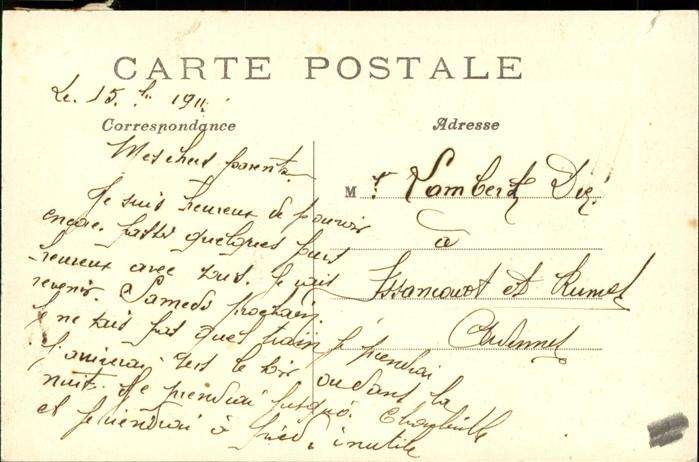 CARTE POSTALE
Le. 15. 1911
Correspondance
Adresse
Mes chers parents
Je suis heureux de pouvoir
encore passer quelques jours
heureux avec vous. Je vais
revenir à Samedi prochain
Je ne sais pas quel train je prendrai
J'arriverai vers le soir ou dans la
nuit. Je prendrai jusqu'à Charleville
et je viendrai à pied, inutile
M r Lambert
à
Issancourt et Rumel
Ardennes